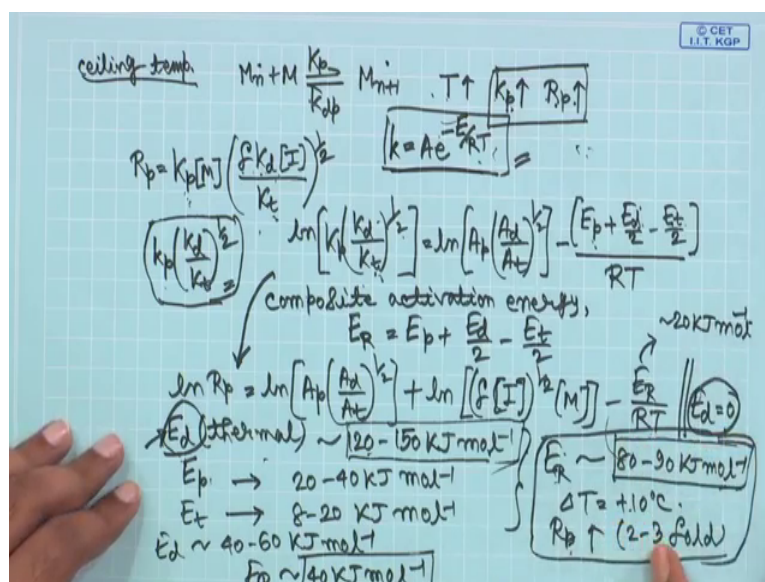 © CET
I.I.T. KGP
ceiling temp. Mṅ + M Kp/Kdp Mṅ+1 T↑ Kp↑ Rp↑
k = Ae^-E/RT
Rp = Kp[M] (f Kd[I]/Kt)^1/2
kp(Kd/Kt)^1/2 =
ln[Kp(Kd/Kt)^1/2] = ln[Ap(Ad/At)^1/2] - [Ep + Ed/2 - Et/2]/RT
composite activation energy,
ER = Ep + Ed/2 - Et/2
~20 KJ mol⁻¹
ln Rp = ln[Ap(Ad/At)^1/2] + ln[(f[I])^1/2 [M]] - ER/RT || Ed=0
Ed (thermal) ~ 120-150 KJ mol⁻¹
Ep → 20-40 KJ mol⁻¹
Et → 8-20 KJ mol⁻¹
Ed ~ 40-60 KJ mol⁻¹
~ 40 KJ mol⁻¹
ER ~ 80-90 KJ mol⁻¹
ΔT = +10°C.
Rp ↑ (2-3 fold)